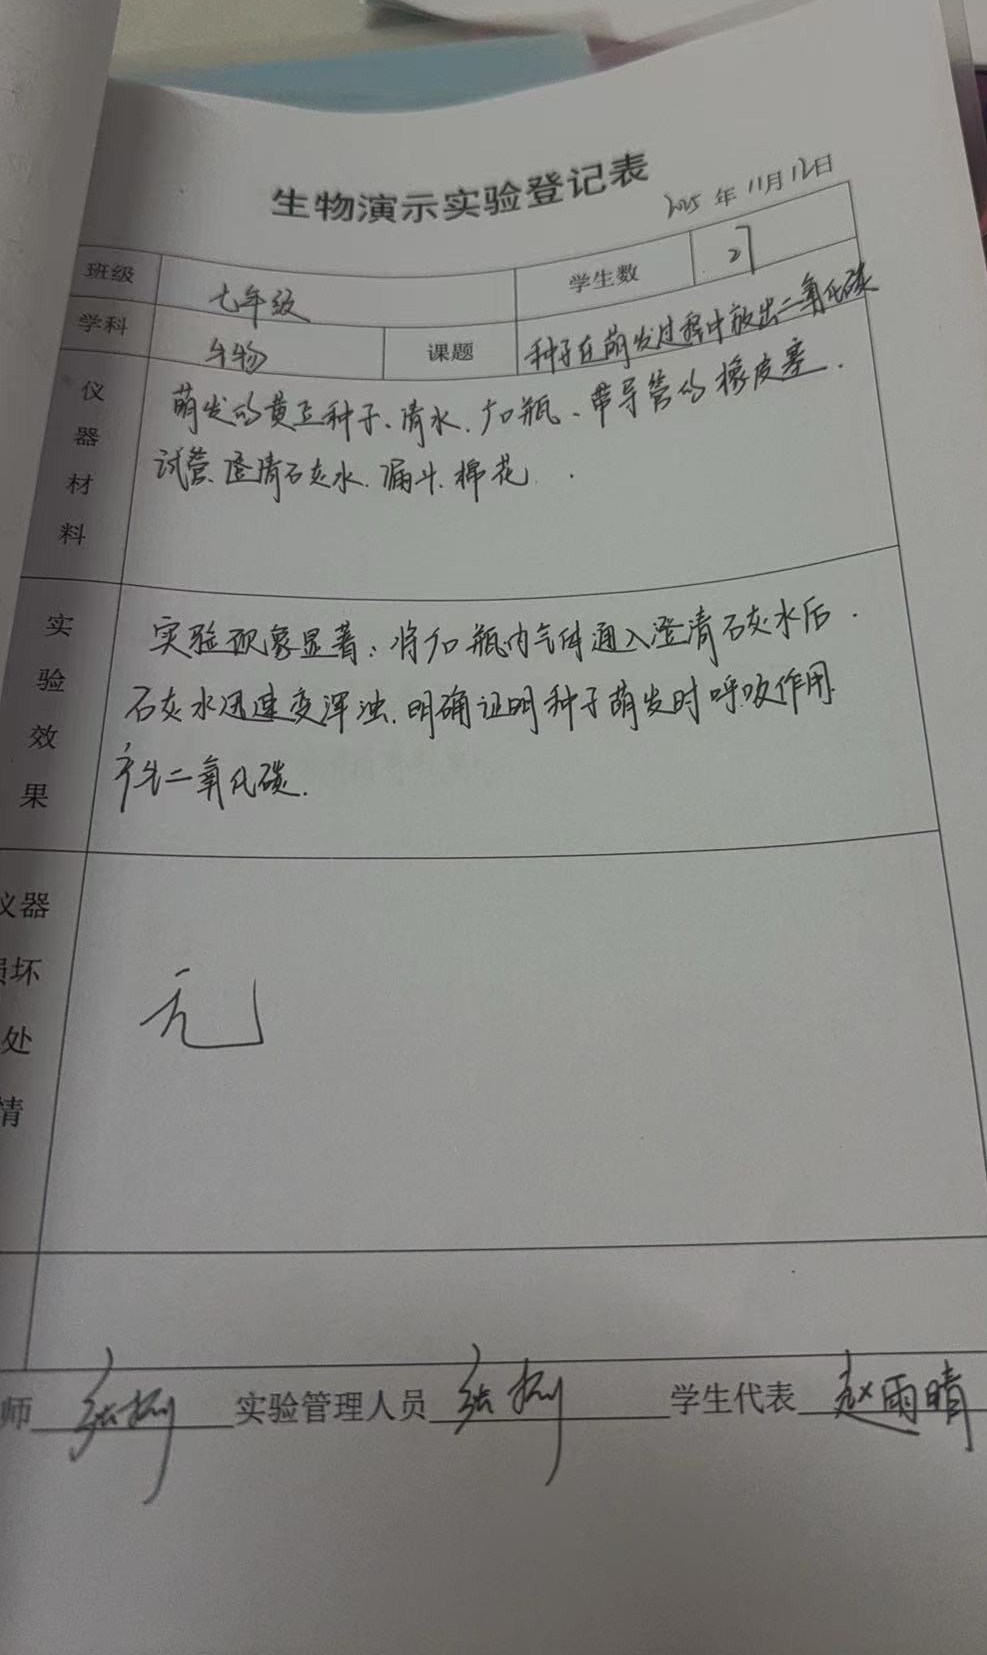 生物演示实验登记表
2025 年 11月 12日
班级 七年级 学生数 27
学科 生物 课题 种子在萌发过程中放出二氧化碳
仪器材料
萌发的黄豆种子、清水、广口瓶、带导管的橡皮塞.
试管、澄清石灰水、漏斗、棉花.
实验效果
实验现象显著:将广口瓶内气体通入澄清石灰水后.
石灰水迅速变浑浊.明确证明种子萌发时呼吸作用
产生二氧化碳.
仪器
损坏
处
情
无
师 实验管理人员 学生代表 赵雨晴